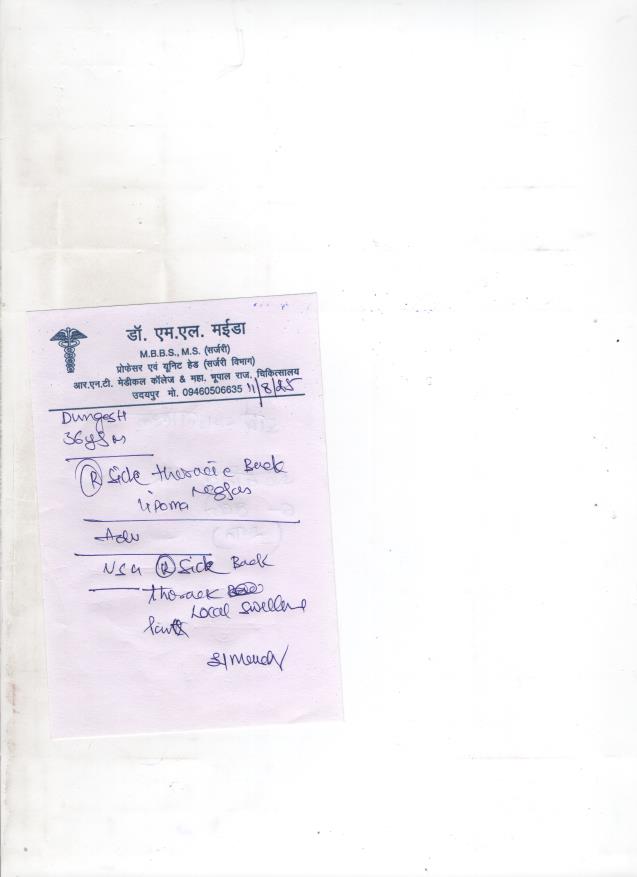 डॉ. एम.एल. मईडा
M.B.B.S., M.S. (सर्जरी)
प्रोफेसर एवं यूनिट हेड (सर्जरी विभाग)
आर.एन.टी. मेडीकल कॉलेज & महा. भूपाल राज. चिकित्सालय
उदयपुर मो. 09460506635 11/8/25
Dungesh
36 yrs M
(R) Side thoracic Back
lipoma
Adv
USG (R) Side Back
Local swelling